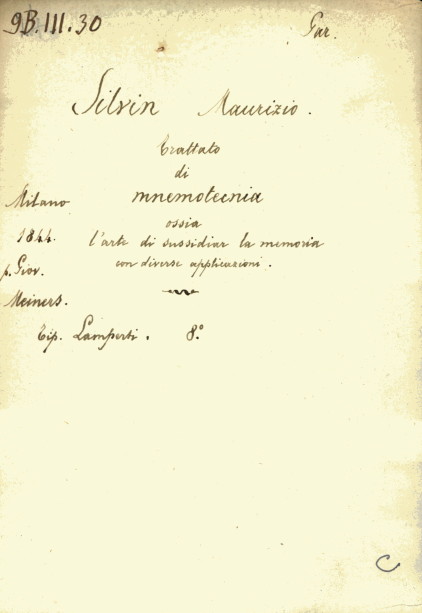 9B.III.30
Gar.
Silvin Maurizio.
Trattato
di
mnemotecnia
ossia
l'arte di sussidiar la memoria
con diverse applicazioni.
Milano
1844.
p. Giov.
Meiners.
Tip. Lamperti. 8.º
C